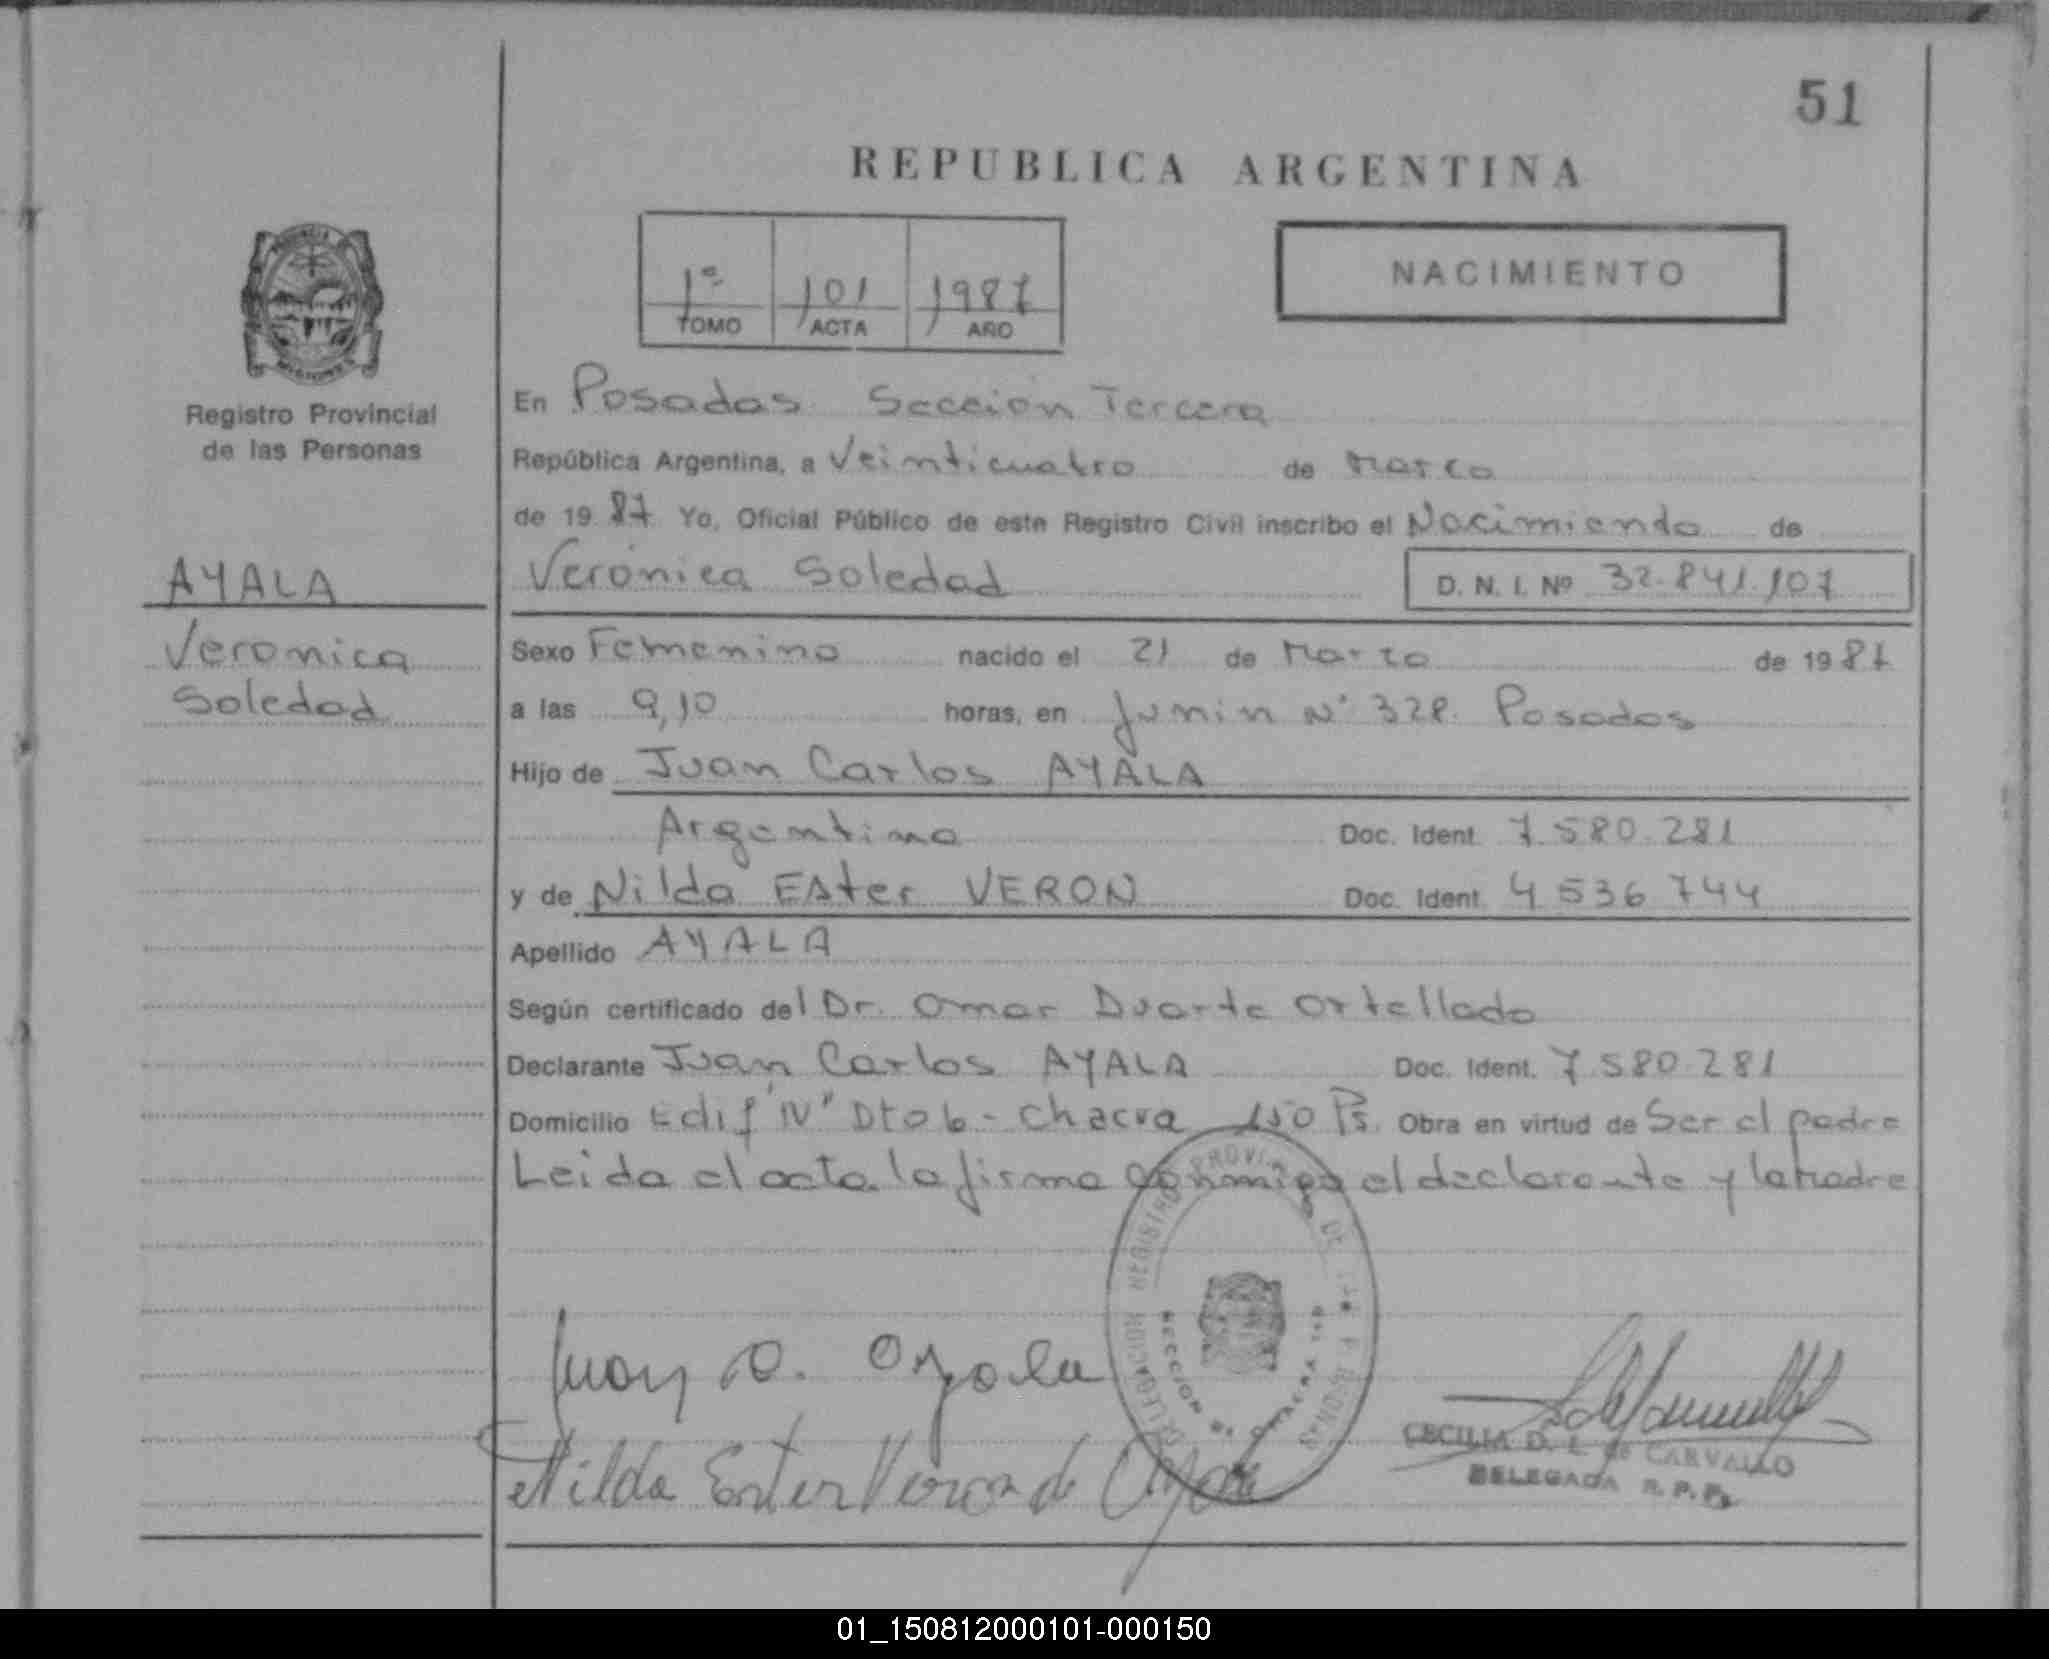 51
REPUBLICA ARGENTINA
1º 101 1987
TOMO ACTA AÑO
NACIMIENTO
Registro Provincial
de las Personas
En Posadas Sección Tercera
República Argentina, a Veinticuatro de Marzo
de 19 87 Yo, Oficial Público de este Registro Civil inscribo el Nacimiento de
AYALA
Verónica Soledad D. N. I. Nº 32.841.107
Veronica
Soledad
Sexo Femenino nacido el 21 de Marzo de 19 87
a las 9,10 horas, en Junin Nº 328. Posadas
Hijo de Juan Carlos AYALA
Argentino Doc. Ident. 7.580.281
y de Nilda Ester VERON Doc. Ident. 4 536 744
Apellido AYALA
Según certificado del Dr. Omar Duarte Ortellado
Declarante Juan Carlos AYALA Doc. Ident. 7.580.281
Domicilio Edif "IV" Dto 6 - Chacra 150 Ps. Obra en virtud de Ser el padre
Leida el acta la firma conmigo el declarante y la madre
REGISTRO PROVINCIAL DE LAS PERSONAS
DELEGACION
SECCION 3a
Juan C. Ayala
Nilda Ester Veron de Ayala
CECILIA D. L. de CARVALLO
DELEGADA R.P.Ps.
01_150812000101-000150